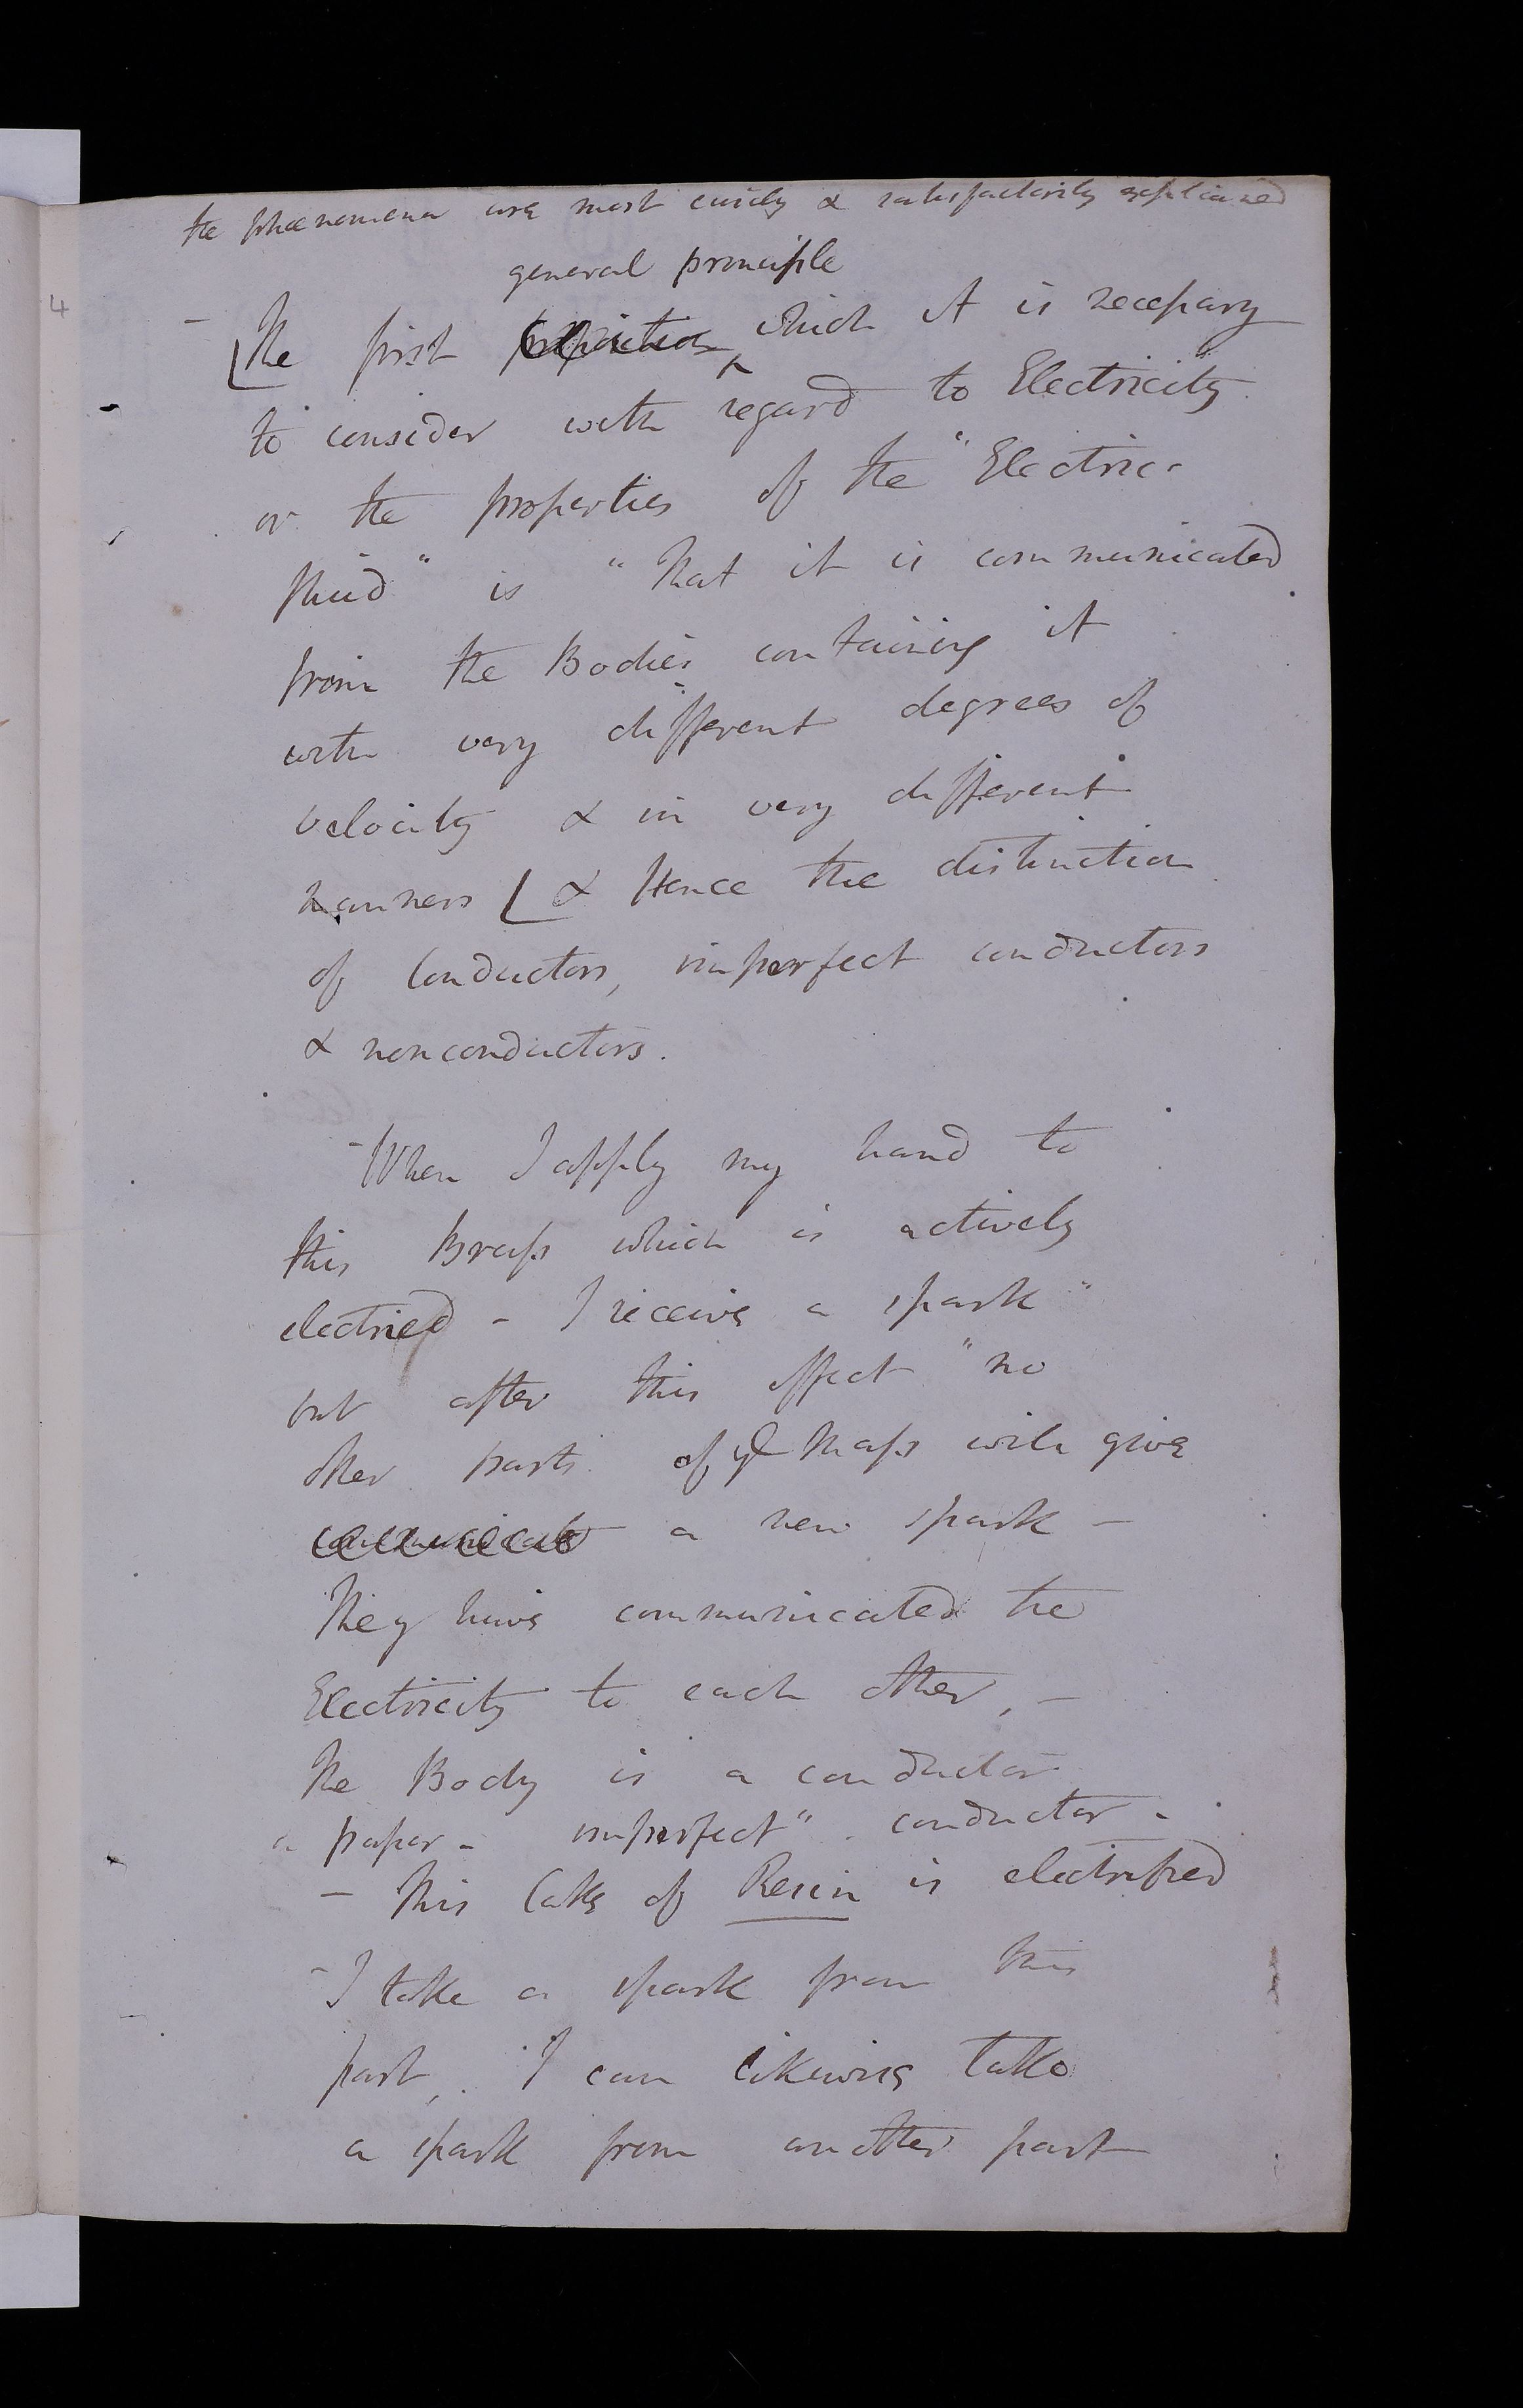 the phænomena are most easily & satisfactorily explained
general principle
- [The first proposition which it is necessary
to consider with regard to Electricity
or the properties of the "Electric
fluid" is "that it is communicated
from the Bodies containing it
with very different degrees of
velocity & in very different
manners [ & Hence the distinction
of Conductors, imperfect conductors
& nonconductors.
- When I apply my hand to
this Brass which is actively
electried - I receive a spark"
but after this effect "no
other parts of ye Mass will give
communicate a new spark -
They have communicated the
Electricity to each other, -
The Body is a conductor
a paper - imperfect" - conductor -
- This Cake of Resin is electrified
- I take a spark from this
part, I can likewise take
a spark from another part
4